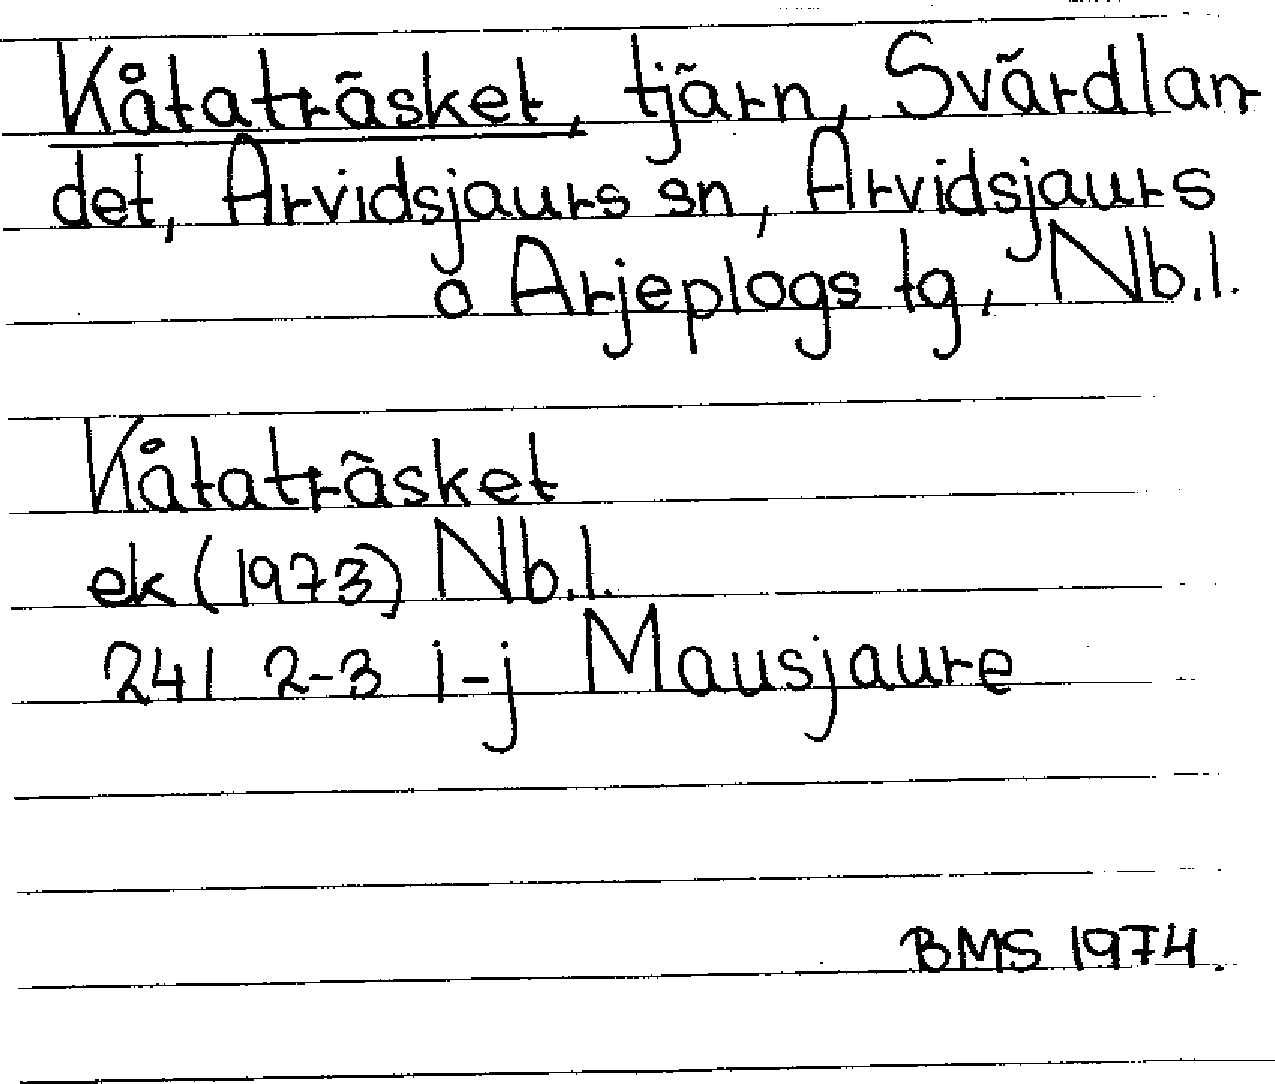 Kåtaträsket, tjärn, Svärdlan-
det, Arvidsjaurs sn, Arvidsjaurs
o Arjeplogs tg, Nb.l.
Kåtaträsket
ek (1973) Nb.l.
241 2-3 i-j Mausjaure
BMS 1974.